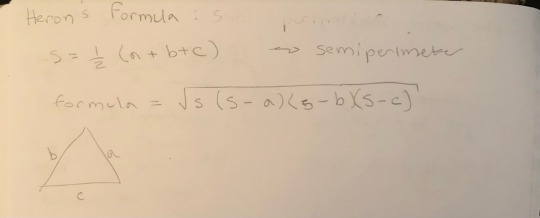 Heron's Formula :
s = 1/2 (a + b + c) → semiperimeter
formula = √s (s - a)(s - b)(s - c)
b a
c